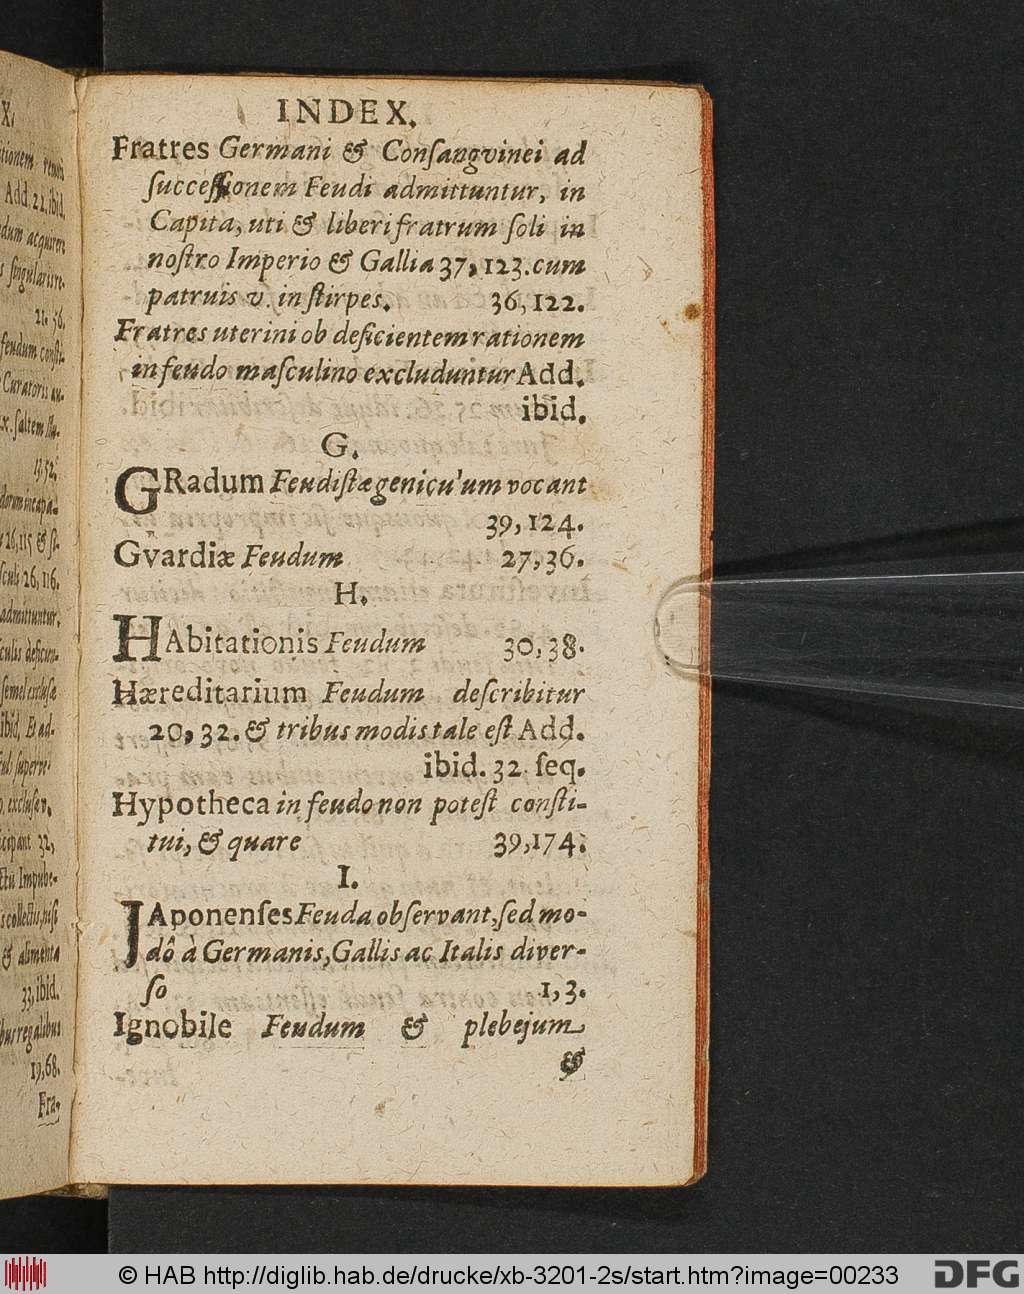 X.
Add. 22. ibid.
21. 56.
13. 52.
26, 115 & 
26, 116.
admittuntur,
ibid, Et ad-
32,
& alimenta
33, ibid.
19, 68.
Fra-
INDEX.
Fratres Germani & Conſangvinei ad
ſucceſſionem Feudi admittuntur, in
Capita, uti & liberi fratrum ſoli in
noſtro Imperio & Gallia 37, 123. cum
patruis v. in ſtirpes. 36, 122.
Fratres uterini ob deficientem rationem
in feudo maſculino excluduntur Add.
ibid.
G.
GRadum Feudiſtæ genicu'um vocant
39, 124.
Gvardiæ Feudum 27, 36.
H.
HAbitationis Feudum 30, 38.
Hæreditarium Feudum deſcribitur
20, 32. & tribus modis tale eſt Add.
ibid. 32. ſeq.
Hypotheca in feudo non poteſt conſti-
tui, & quare 39, 174.
I.
JAponenſes Feuda obſervant, ſed mo-
dô à Germanis, Gallis ac Italis diver-
ſo 1, 3.
Ignobile Feudum & plebejum
&
© HAB http://diglib.hab.de/drucke/xb-3201-2s/start.htm?image=00233
DFG